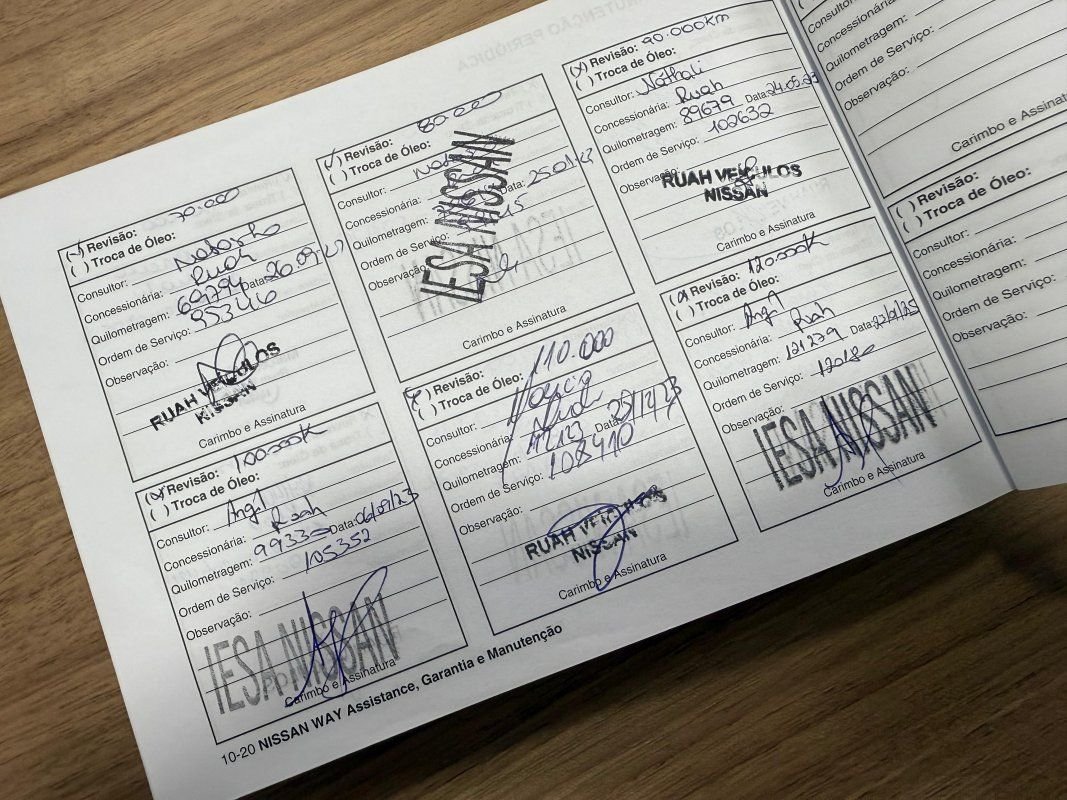 70.000
(✓) Revisão:
( ) Troca de Óleo:
Consultor:
Concessionária: Ruah
Quilometragem: 69794 Data:
Ordem de Serviço: 95346
Observação:
RUAH VEÍCULOS
NISSAN
Carimbo e Assinatura
(✓) Revisão: 80.000
( ) Troca de Óleo:
Consultor:
Concessionária:
Quilometragem: Data:
Ordem de Serviço:
Observação:
IESA NISSAN
Carimbo e Assinatura
(x) Revisão: 90.000Km
( ) Troca de Óleo:
Consultor: Nathali
Concessionária: Ruah
Quilometragem: 89679 Data: 24.05.23
Ordem de Serviço: 102632
Observação:
RUAH VEÍCULOS
NISSAN
Carimbo e Assinatura
(x) Revisão: 100000K
( ) Troca de Óleo:
Consultor: Angl
Concessionária: Ruah
Quilometragem: 9933 Data: 06/09/23
Ordem de Serviço: 105352
Observação:
IESA NISSAN
Carimbo e Assinatura
Revisão: 110.000
( ) Troca de Óleo:
Consultor:
Concessionária: Ruah
Quilometragem: Data:
Ordem de Serviço: 108410
Observação:
RUAH VEÍCULOS
NISSAN
Carimbo e Assinatura
(x) Revisão: 120.000K
( ) Troca de Óleo:
Consultor: Angl
Concessionária: Ruah
Quilometragem: 121279 Data:
Ordem de Serviço: 120180
Observação:
IESA NISSAN
Carimbo e Assinatura
10-20 NISSAN WAY Assistance, Garantia e Manutenção
Consultor:
Concessionária:
Quilometragem:
Ordem de Serviço:
Observação:
Carimbo e Assinatura
( ) Revisão:
( ) Troca de Óleo:
Consultor:
Concessionária:
Quilometragem:
Ordem de Serviço:
Observação: